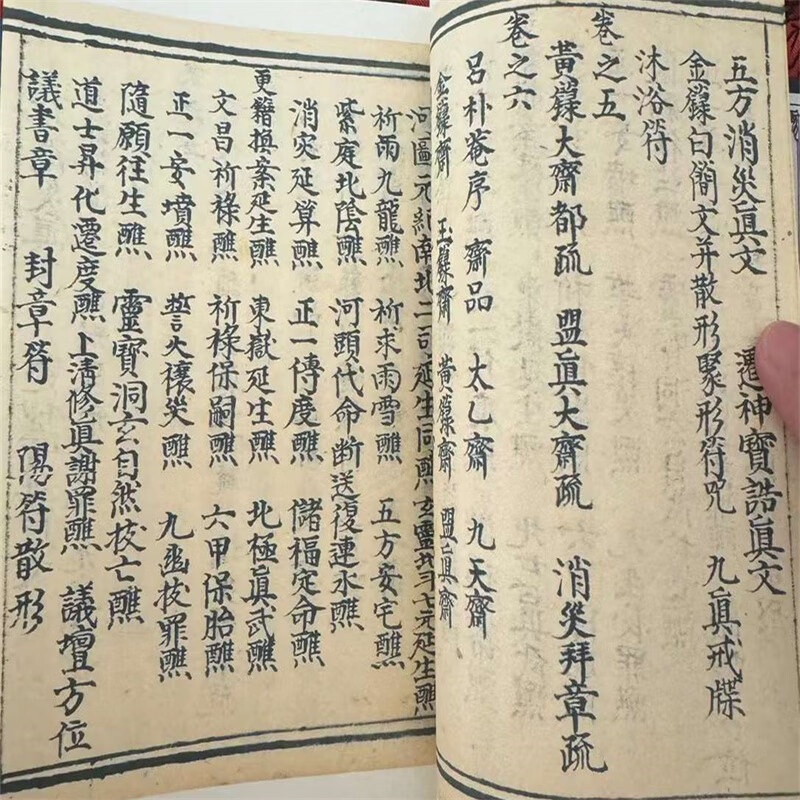 五方消災眞文　遷神寶誥眞文
金籙白簡文并散形聚形符咒　九眞戒牒
沐浴符
卷之五
黃籙大齋都疏　盟眞大齋疏　消災拜章疏
卷之六
呂朴菴序　齋品　太乙齋　九天齋
金籙齋　玉籙齋　黃籙齋　盟眞齋
河圖元紀南北二司延生同醮　玄靈北斗七元延生醮
祈雨九龍醮　祈求雨雪醮　五方安宅醮
紫庭北陰醮　河頭代命斷送復連水醮
消灾延算醮　正一傳度醮　儲福定命醮
更籍換案延生醮　東嶽延生醮　北極眞武醮
文昌祈祿醮　祈祿保嗣醮　六甲保胎醮
正一安墳醮　誓火禳災醮　九幽拔罪醮
隨願往生醮　靈寶洞玄自然拔亡醮
道士昇化遷度醮　上清修眞謝罪醮　議壇方位
議書章　封章符　陽符散形